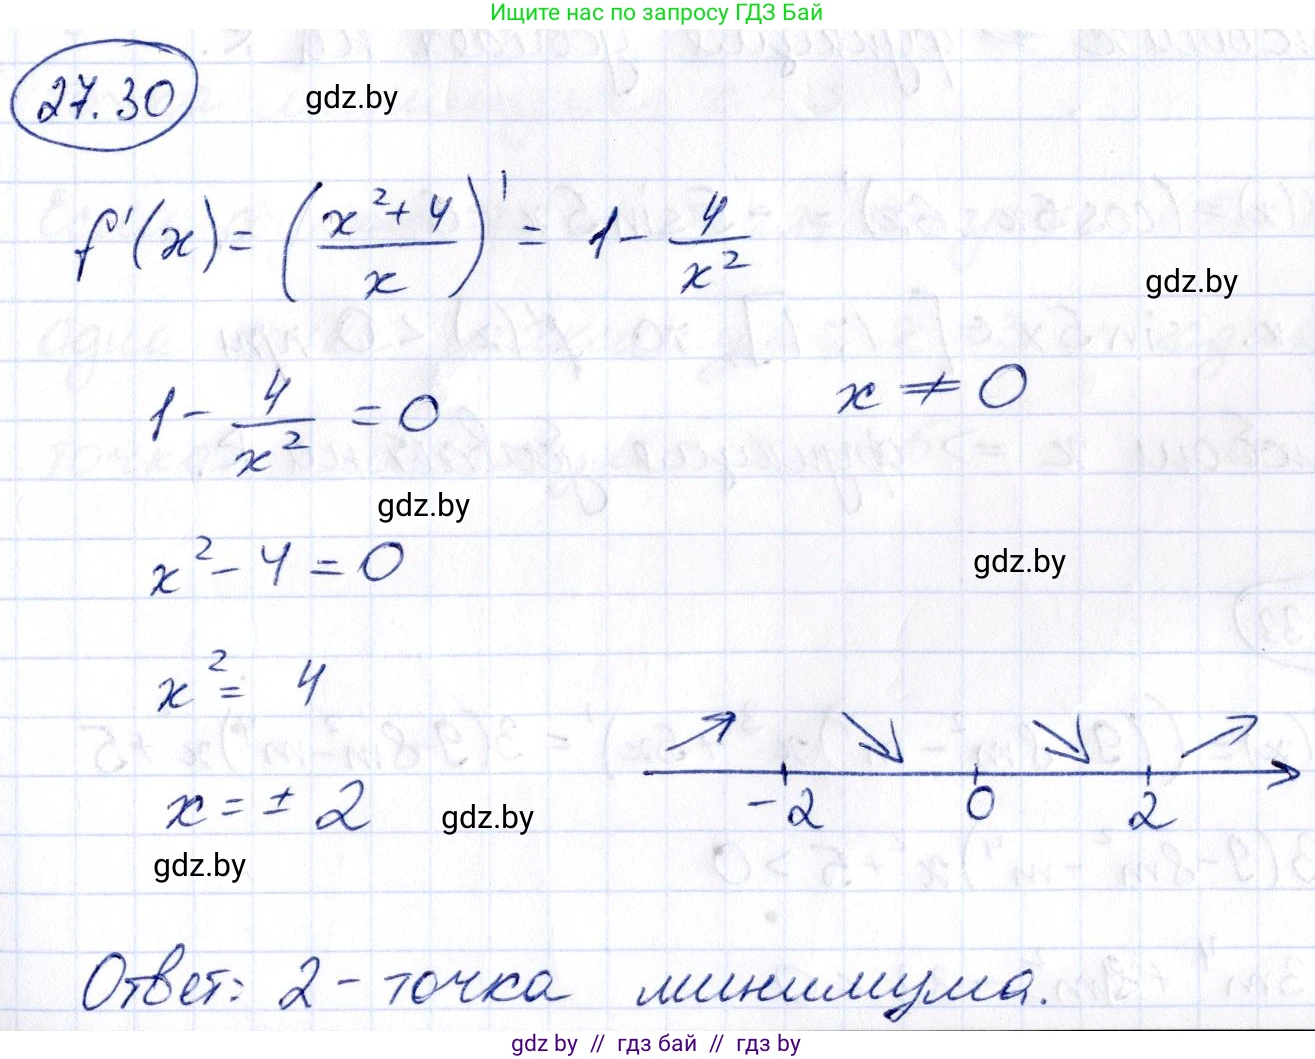 Ищите нас по запросу ГДЗ Бай
27.30
gdz.by
f'(x) = ((x²+4)/x)' = 1 - 4/x²
gdz.by
1 - 4/x² = 0
x ≠ 0
gdz.by
x² - 4 = 0
gdz.by
x² = 4
x = ± 2
gdz.by
-2 0 2
gdz.by
Ответ: 2 - точка минимума.
gdz.by // гдз бай // гдз by